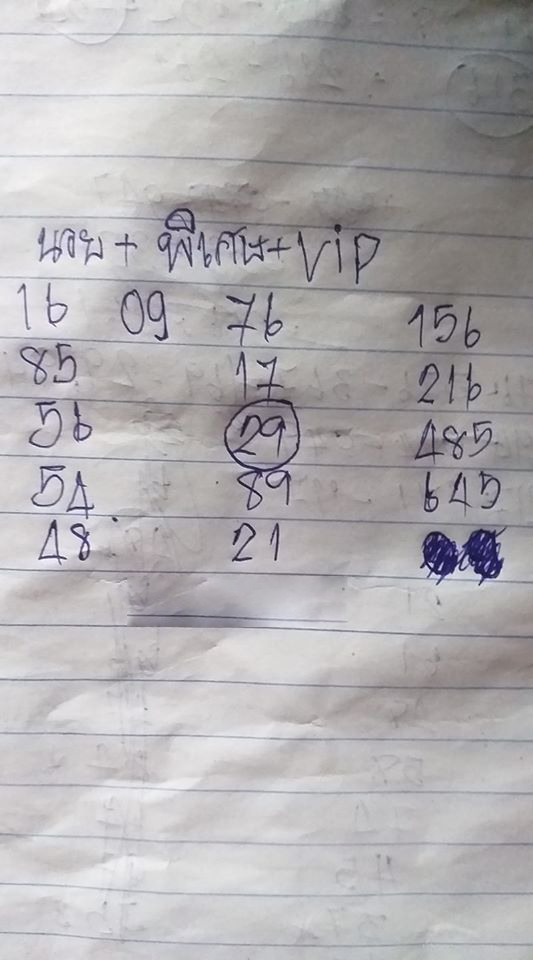 นอย + พิเศษ + Vip
16 09 76 156
85 17 216
56 29 485
54 89 645
48 21